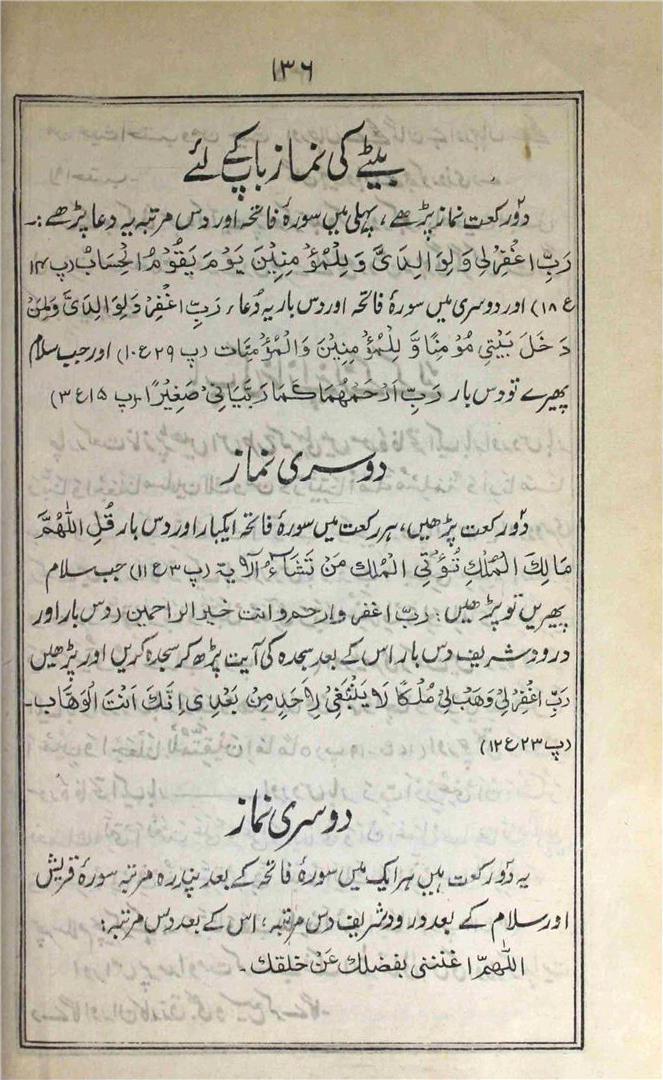 ۱۳۶
بیٹے کی نماز باپ کے لئے
دو رکعت نماز پڑھے، پہلی میں سورۂ فاتحہ اور دس مرتبہ یہ دعا پڑھے:۔
رَبِّ اغْفِرْ لِیْ وَلِوَالِدَیَّ وَلِلْمُؤْمِنِیْنَ یَوْمَ یَقُوْمُ الْحِسَابُ (پ ۱۴
ع ۱۸) اور دوسری میں سورۂ فاتحہ اور دس بار یہ دُعا، رَبِّ اغْفِرْ وَلِوَالِدَیَّ وَلِمَنْ
دَخَلَ بَیْتِیْ مُؤْمِنًا وَّ لِلْمُؤْمِنِیْنَ وَالْمُؤْمِنَات (پ ۲۹ ع ۱۰) اور جب سلام
پھیرے تو دس بار رَبِّ ارْحَمْهُمَا کَمَا رَبَّیَانِیْ صَغِیْرًا۔ (پ ۱۵ ع ۳)
دوسری نماز
دو رکعت پڑھیں، ہر رکعت میں سورۂ فاتحہ ایکبار اور دس بار قُلِ اللّٰهُمَّ
مَالِكَ الْمُلْكِ تُؤْتِی الْمُلْكَ مَنْ تَشَآءُ الآیة (پ ۳ ع ۱۱) جب سلام
پھیریں تو پڑھیں: ربّ اغفر وارحم وانت خیر الراحمین (دس بار اور
درود شریف دس بار اس کے بعد سجدہ کی آیت پڑھ کر سجدہ کریں اور پڑھیں
رَبِّ اغْفِرْ لِیْ وَهَبْ لِیْ مُلْکًا لَا یَنْبَغِیْ لِاَحَدٍ مِنْ بَعْدِی اِنَّكَ اَنْتَ الْوَهَّاب۔
(پ ۲۳ ع ۱۲)
دوسری نماز
یہ دو رکعت ہیں ہر ایک میں سورۂ فاتحہ کے بعد پندرہ مرتبہ سورۂ قریش
اور سلام کے بعد درود شریف دس مرتبہ، اس کے بعد دس مرتبہ:
اللّٰهمّ اغننی بفضلك عَنْ خلقك۔